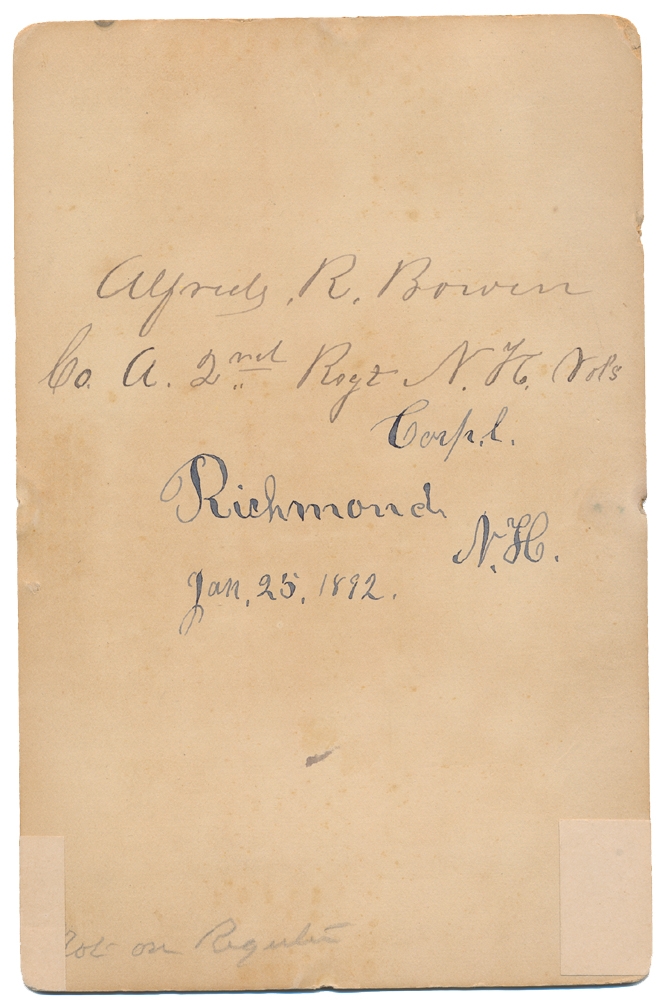 Alfred, R, Bowen
Co. A. 2nd Regt N. H. Vols
Corp.l.
Richmond
N. H.
Jan, 25, 1892.
on Register